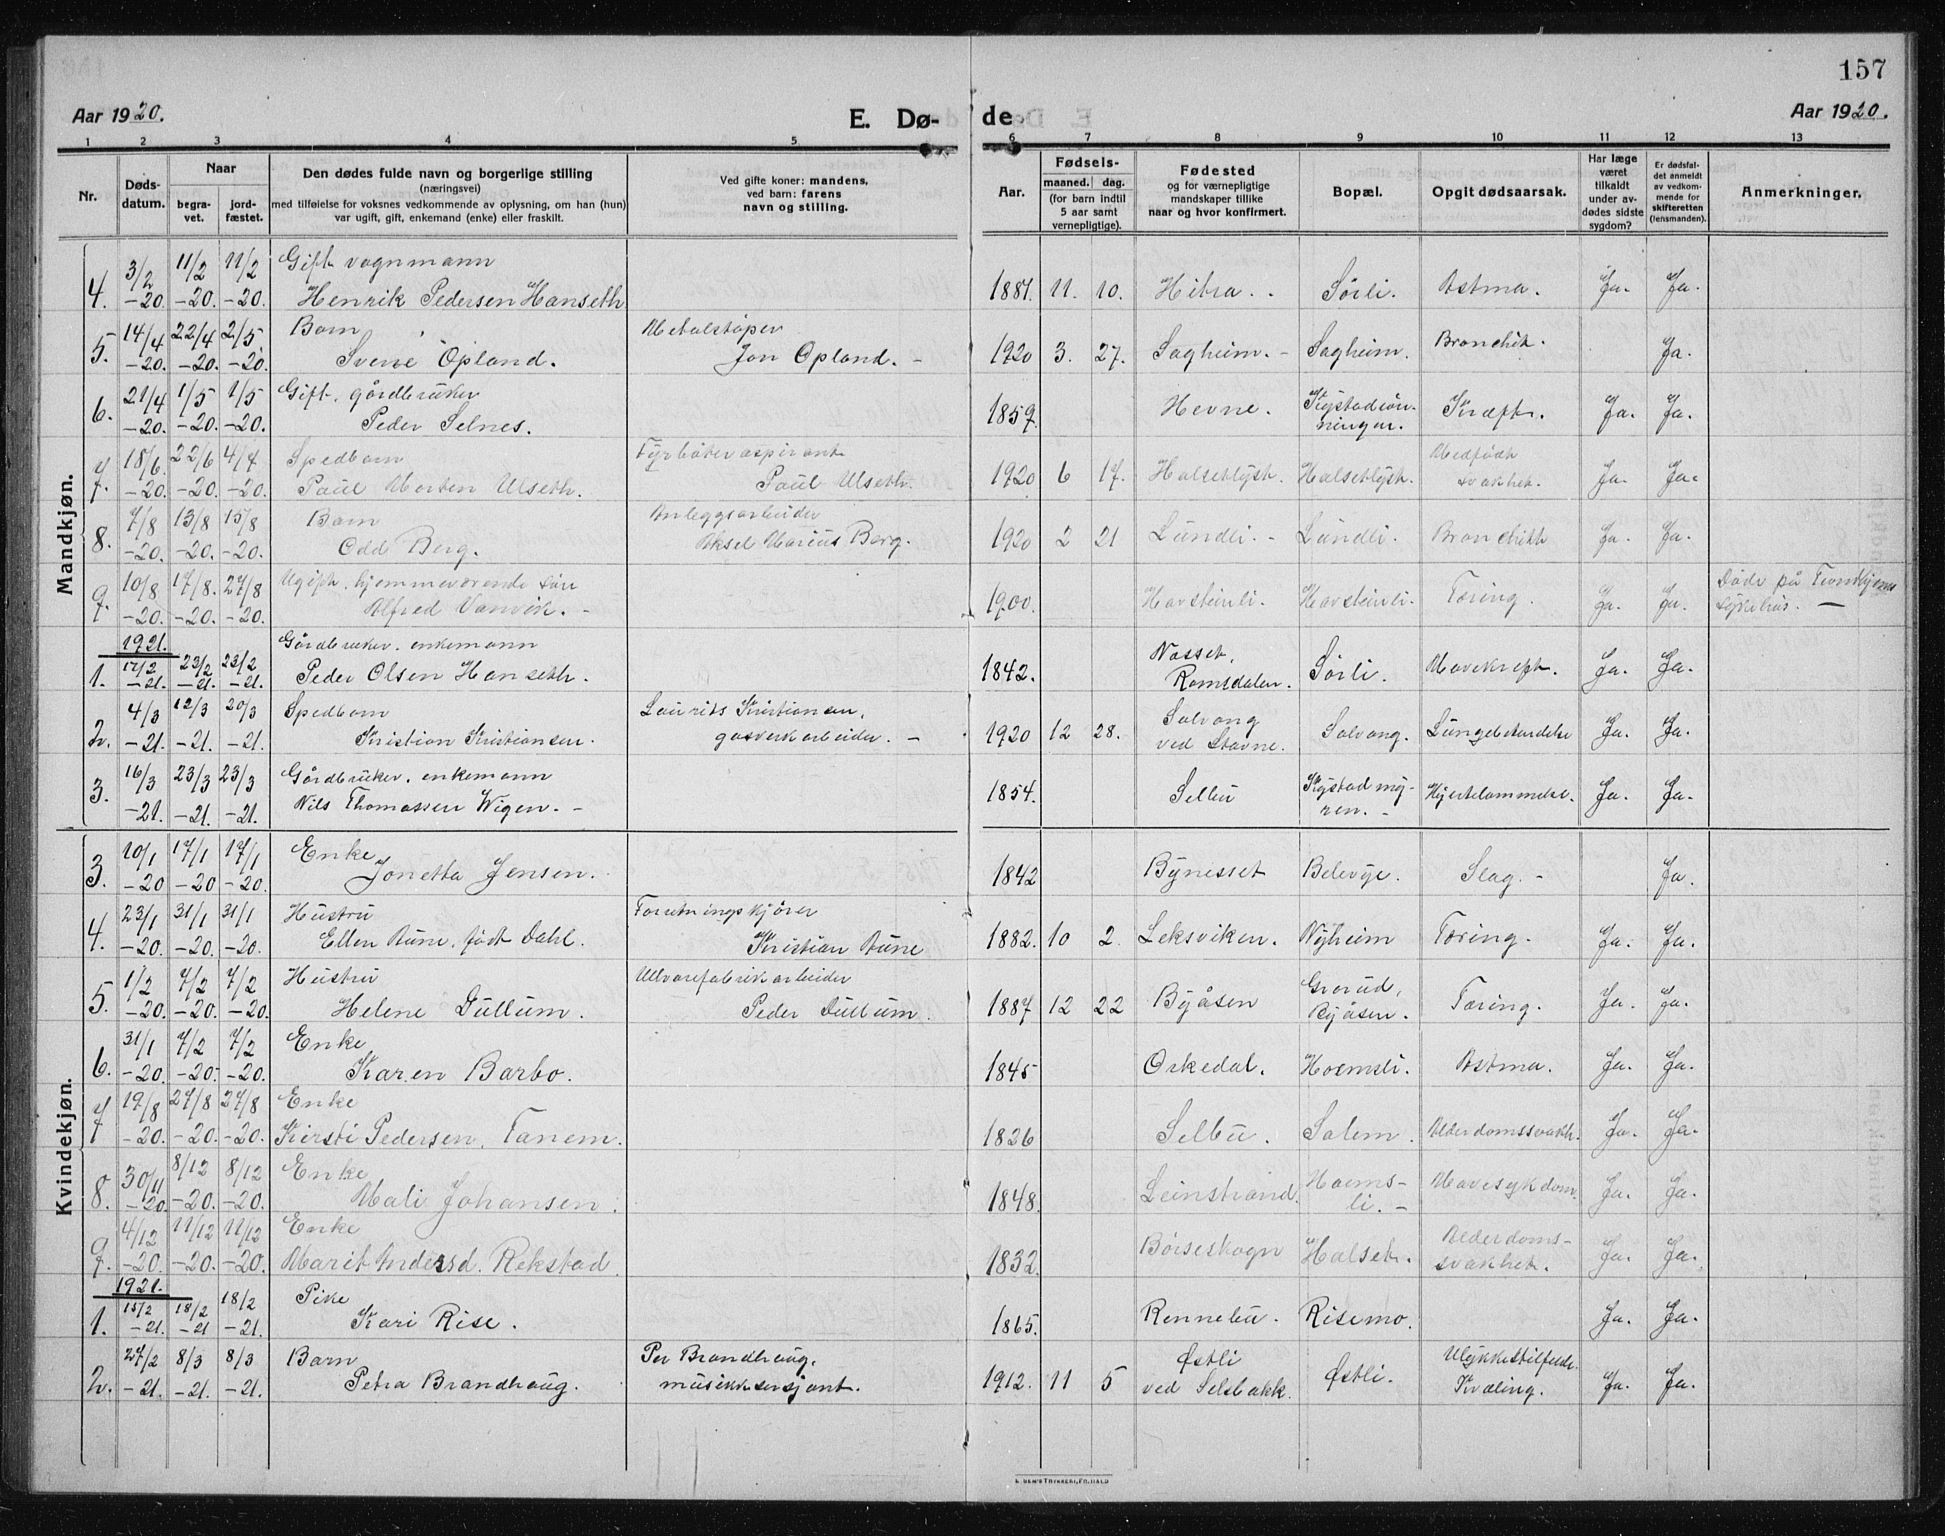 157
Aar 1920. E. Dø- de Aar 1920.
1 2 3 4 5 6 7 8 9 10 11 12 13
Nr. | Døds-datum. | Naar begra-vet. | jord-fæstet. | Den dødes fulde navn og borgerlige stilling (næringsvei) med tilføielse for voksnes vedkommende av oplysning, om han (hun) var ugift, gift, enkemand (enke) eller fraskilt. | Ved gifte koner: mandens, ved barn: farens navn og stilling. | Aar. | Fødsels- maaned. dag. (for barn indtil 5 aar samt vernepligtige). | Fødested og for værnepligtige mandskaper tillike naar og hvor konfirmert. | Bopæl. | Opgit dødsaarsak. | Har læge været tilkaldt under av-dødes sidste sygdom? | Er dødsfal-det anmeldt av vedkom-mende for skifteretten (lensmanden). | Anmerkninger.
Mandkjøn.
4. 3/2 -20. 11/2 -20. 11/2 -20. Gift vognmann Henrik Pedersen Hanseth 1881. 11. 10. Hitra. Sörli. Astma. Ja. Ja.
5. 14/4 -20. 22/4 -20. 2/5. -20. Barn Sverre Opland. Metalstöper Jon Opland. - 1920 3. 27. Sagheim. - Sagheim. Bronchit. Ja.
6. 21/4 -20. 1/5 -20. 1/5 -20. Gift, gårdbruker Peder Selnes. 1859. Hevne. Kræft. Ja. Ja.
7. 18/6. -20. 22/6 -20. 4/7 -20. Spedbarn Paul Morten Ulseth. Fyrböteraspirant Paul Ulseth. 1920 6 17. Halsetlyst. Halsetlyst. Medfödt svakhet. Ja. Ja.
8. 7/8 -20. 13/8 -20. 15/8 -20. Barn Odd Berg. Anleggsarbeider Aksel Marius Berg. 1920 2 21 Lundli. - Lundli. Bronchitt Ja. Ja.
9. 10/8 -20. 17/8. -20. 27/8 -20. Ugift. hjemmeværende sön Alfred Vanvik. - 1900. Havsteinli. Havsteinli. Tæring. Ja. Ja. Döde på Trondhjems sykehus. -
1921.
1. 17/2 -21. 23/2 -21. 23/2 -21. Gårdbruker, enkemann Peder Olsen Hanseth. 1842. Nasset, Romsdalen. Sörli. Mavekræft. Ja. Ja.
2. 4/3 -21. 12/3 -21. 20/3 -21. Spedbarn Kristian Kristiansen. Laurits Kristiansen, gasverkarbeider. - 1920 12 28. Solvang ved Stavne. Solvang. Lungebetændelse Ja. Ja.
3. 16/3 -21. 23/3 -21. 23/3 -21. Gårdbruker. enkemann Nils Thomassen Wigen. - 1854. Selbu Kystadmy-ren. - Hjertelammelse. Ja. Ja.
Kvindekjøn.
3. 10/1 -20 17/1 -20 17/1 -20. Enke Jonetta Jensen. 1842 Bynesset Belevye. Slag. - Ja.
4. 23/1 -20. 31/1 -20. 31/1 -20. Hustru Ellen Aune, född Dahl. Forretningskjörer Kristian Aune 1882. 10 2. Leksviken. Nyheim Tæring. Ja. Ja.
5. 1/2 -20. 7/2 -20. 7/2 -20. Hustru Helene Dullum. Ullvarefabrikarbeider Peder Dullum. 1887 12 22 Byåsen Grorud, Byåsen. Tæring. Ja. Ja.
6. 31/1 -20. 7/2 -20. 7/2 -20. Enke Karen Barbo. 1845 Orkedal. Hoemsli. Astma. Ja. Ja.
7 19/8 -20. 27/8 -20. 27/8 -20. Enke Kirsti Pedersen, Tanem. 1826 Selbu. Salem. Alderdomssvakh. Ja. Ja.
8. 30/11 -20. 8/12 -20. 8/12 -20. Enke Mali Johansen. 1848. Leinstrand. Hoems-li. - Mavesykdom. Ja. Ja.
9. 4/12 -20. 11/12 -20. 11/12 -20. Enke Marit Andersd. Rekstad. 1832. Börseskogn Halset. Alderdoms-svakhet. Ja. Ja.
1921.
1. 15/2 -21. 18/2 -21 18/2 -21. Pike Kari Rise. 1865. Rennebu. Risemo. Ja. Ja.
2. 27/2 -21. 8/3 -21. 8/3 -21. Barn Petra Brandhaug. Per Brandhaug, musikksersjant. 1912. 11 5 Østli ved Selsbakk. Østli. Ulykkestilfelde. Kvæling. Ja. Ja.